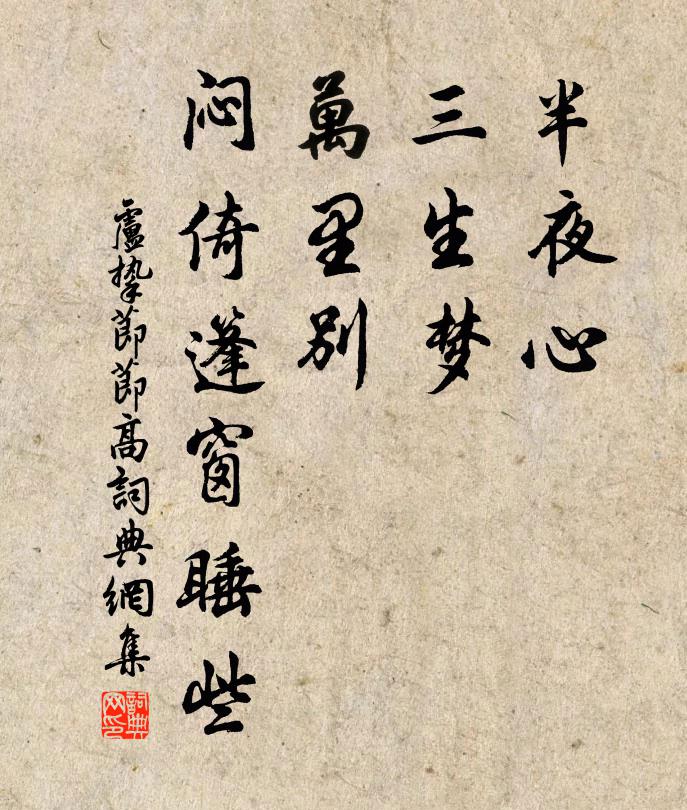 半夜心
三生梦
萬里别
闷倚篷窗睡些
盧摯節節高詞典網集
詞典网印